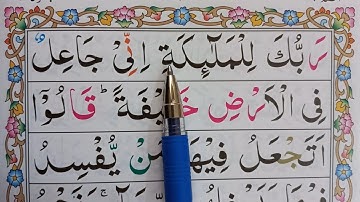 رَبُّكَ لِلْمَلٰٓئِكَةِ اِنِّیْ جَاعِلٌ
فِی الْاَرْضِ خَلِیْفَةً ؕ قَالُوْۤا
اَتَجْعَلُ فِیْهَا مَنْ یُّفْسِدُ